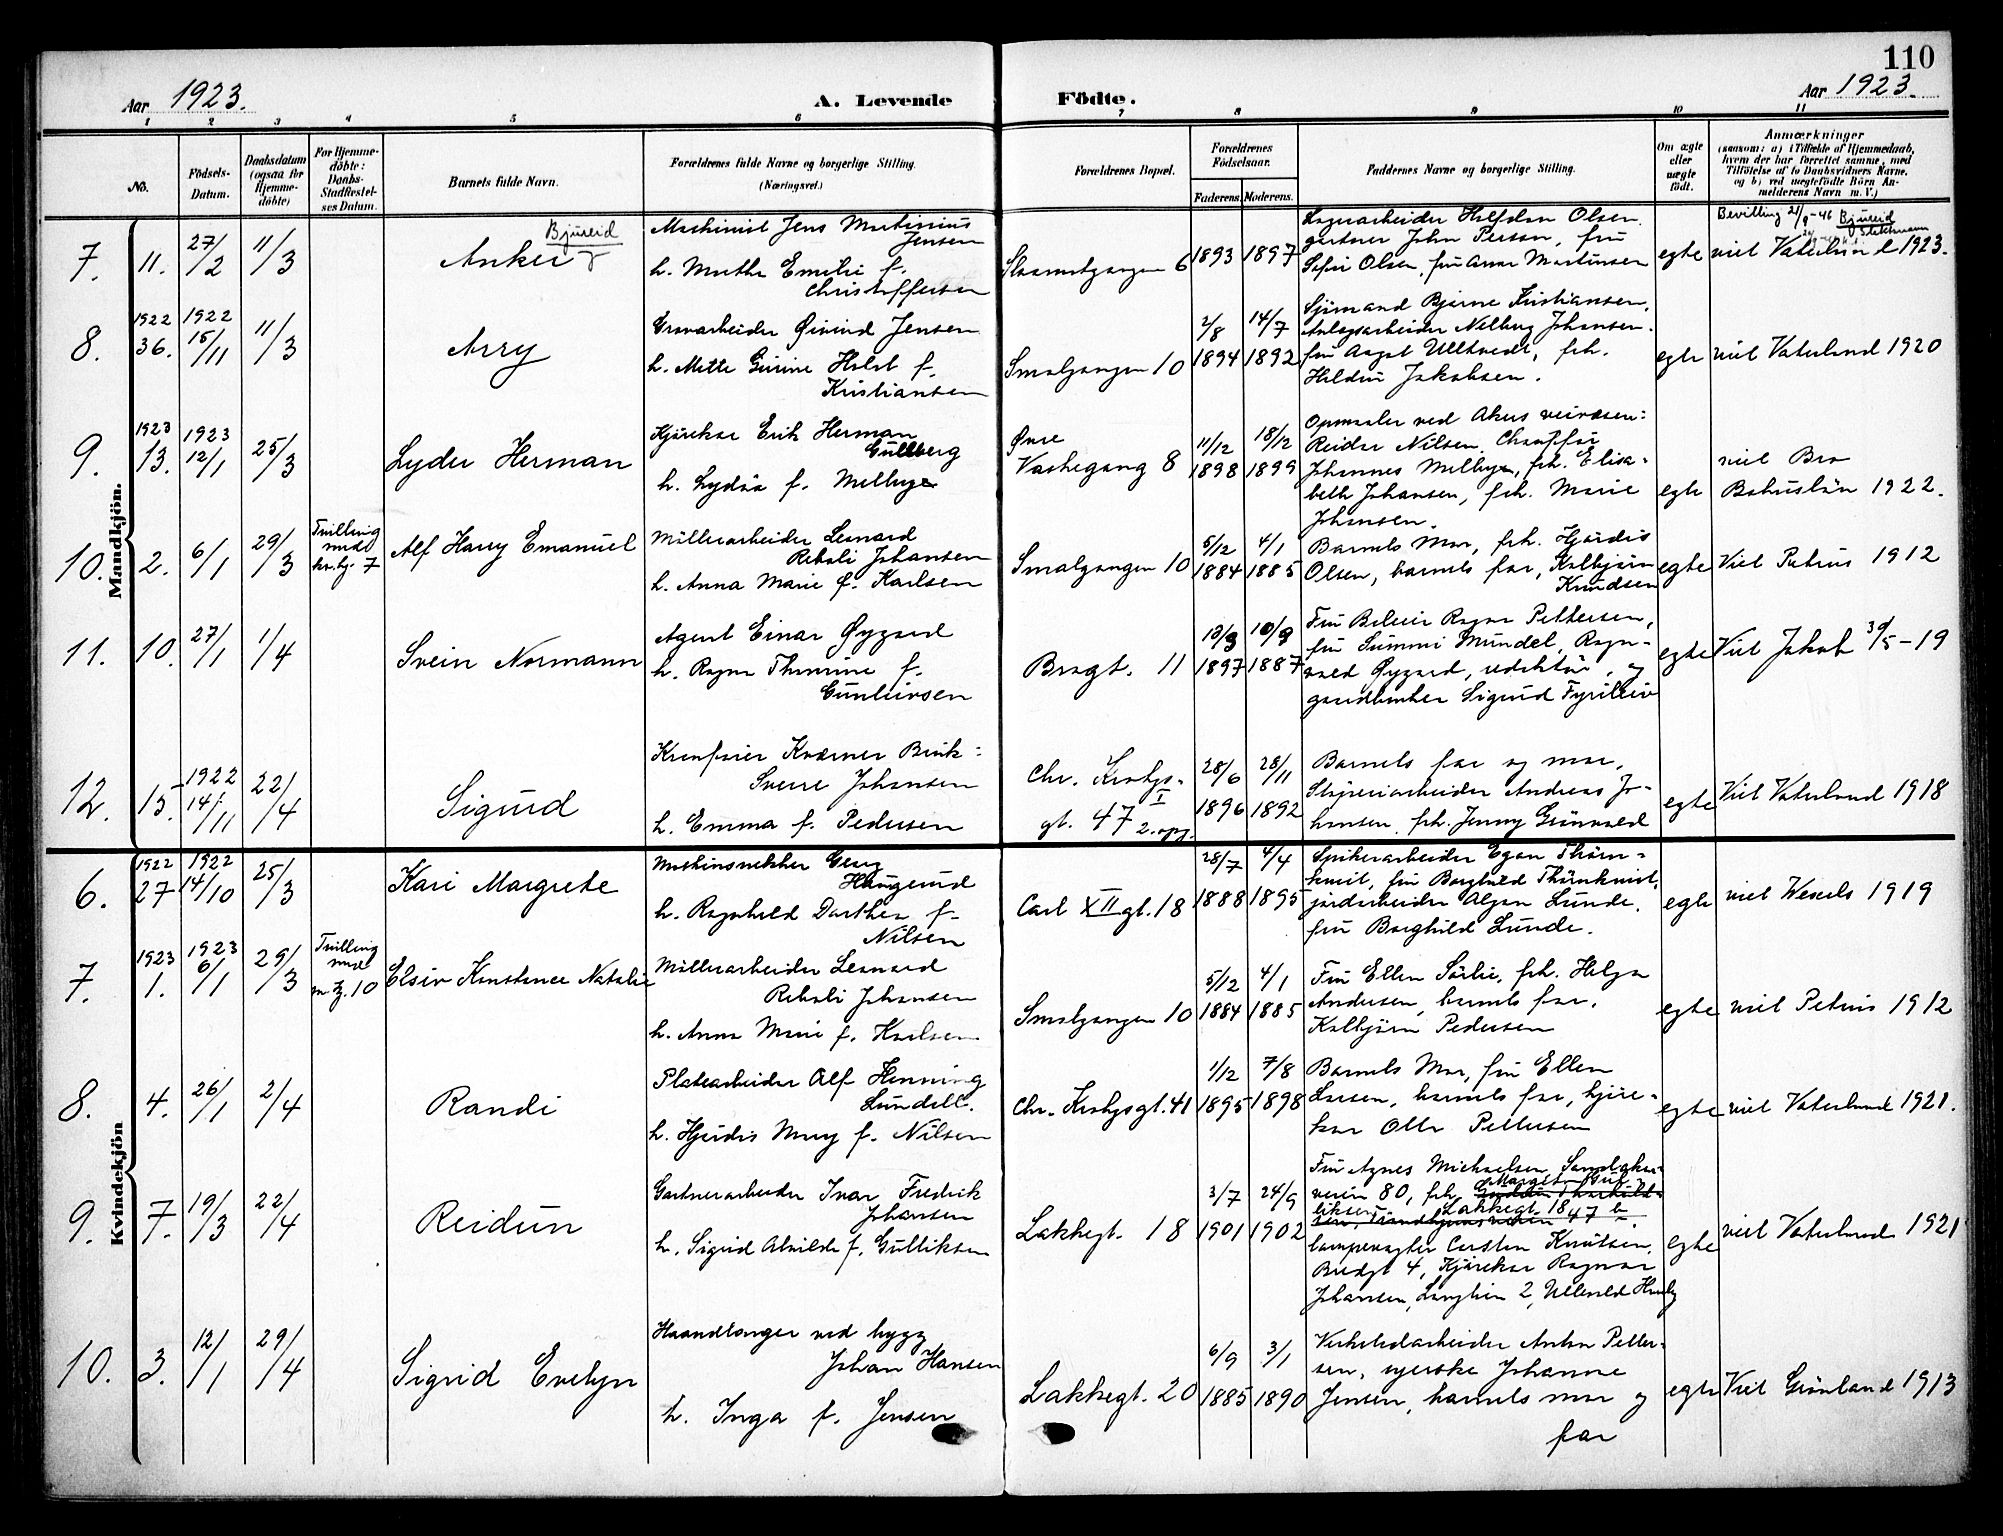 110
Aar 1923.
A. Levende Födte.
Aar 1923.
1 2 3 4 5 6 7 8 9 10 11
No.
Födsels-
Datum.
Daabsdatum
(ogsaa for
Hjemme-
döbte)
For Hjemme-
döbte:
Daabs-
Stadfæstel-
ses Datum.
Barnets fulde Navn.
Forældrenes fulde Navne og borgerlige Stilling.
(Næringsvei.)
Forældrenes Bopæl.
Forældrenes
Födselsaar.
Faderens. Moderens.
Faddernes Navne og borgerlige Stilling.
Om ægte
eller
uægte
födt.
Anmærkninger
(saasom: a) i Tilfælde af Hjemmedaab,
hvem der har forrettet samme, med
Tilföielse af to Daabsvidners Navne,
og b) ved uægtefödte Börn An-
melderens Navn m. V.)
Mandkjön.
7. 11. 27/2 11/3
Bjureid
Anker
Maskinist Jens Martinius
Jensen
h. Marthe Emilie f.
Christoffersen
6
1893 1897
Lagerarbeider Halfdan Olsen
gartner John Person, fru
Sofie Olsen, fru Anna Martinsen
egte
Bevilling 21/9-46 Bjureid
viet Vaterland 1923.
8. 1922
36. 1922
15/11 11/3
Arry
Grovarbeider Øivind Jensen
h. Mette Gurine Holst f.
Kristiansen
Smalgangen 10
2/8
1894 14/7
1892
Sjömand Bjarne Kristiansen,
Anlægsarbeider Johansen.
fru Aagot Ulltvedt, frk.
Jakobsen.
egte
viet Vaterland 1920
9. 1923
13. 1923
12/1 25/3
Lyder Herman
Kjörekar Erik Herman
Gullberg
h. Lydia f. Melbye
Øvre
Vaskegang 8
11/12
1898 18/12
1899
Opmaaler ved Akers veivæsen:
Reidar Nilsen. Chauffør
Johannes Melbye, frk. Elisa-
beth Johansen, frk. Marie
Johansen.
egte
viet Bro
Bohuslän 1922.
10. 2. 6/1 29/3
Tvilling
med
kv.kj. 7
Alf Harry Emanuel
Möllerarbeider Leonard
Rikoli Johansen
h. Anna Marie f. Karlsen
Smalgangen 10
5/12
1884 4/1
1885
Barnets Mor, frk. Hjördis
Olsen, barnets far, Kolbjörn
Knudsen
egte
Viet Petrus 1912
11. 10. 27/1 1/4
Svein Normann
Agent Einar Øygard
h. Ragna Thomine f.
Gunleivsen
Brogt. 11
1897 1887
Fru Ragna Pettersen,
fru Sunniva Mundal, Ragn-
vald Øygard, redaktør, og
gardbruker Sigurd Fyrileiv
egte
Viet Jakob 30/5-19
12. 15. 1922
14/11 22/4
Sigurd
Kranfører Kværner Bruk:
Sverre Johansen
h. Emma f. Pedersen
Chr. Krohgs-
gt. 47 I
2. opg.
28/6
1896 28/11
1892
Barnets far og mor,
Sliperiarbeider Andreas Jo-
hansen, frk. Jenny Grönvold
egte
Viet Vaterland 1918
Kvindekjön
6. 1922
27 1922
14/10 25/3
Kari Margrete
Maskinsnekker Georg
Haugerud
h. Ragnhild Dorthea f.
Nilsen
Carl XII gt. 18
28/7
1888 4/4
1895
Spikerarbeider Egon Thörn-
kvist, fru Borghild Thörnkvist,
jordarbeider Lunde,
fru Borghild Lunde.
egte
viet Wexels 1919
7. 1923
1. 1923
6/1 29/3
Tvilling
med
m.kj. 10
Elsiv Konstance Natalie
Möllerarbeider Leonard
Rikoli Johansen
h. Anna Marie f. Karlsen
Smalgangen 10
5/12
1884 4/1
1885
Fru Ellen Sörlie, frk. Helga
Andersen, barnets far,
Kolbjörn Pedersen
egte
viet Petrus 1912
8. 4. 26/1 2/4
Randi
Platearbeider Alf Henning
Lundell.
h. Hjördis Mary f. Nilsen
Chr. Krohgsgt. 41
1/12
1895 7/8
1898
Barnets Mor, fru Ellen
Larsen, barnets far, kjöre-
kar Olle Pettersen
egte
viet Vaterland 1921.
9. 7. 19/3 22/4
Reidun
Gartnerarbeider Ivar Fredrik
Johansen
h. Sigrid Alvilde f. Gulliksen
Lakkegt. 18
3/7
1901 24/9
1902
Fru Agnes Michaelsen, Sandaker-
veien 80, frk. Margit Gul-
liksen, Lakkegt. 18
lampevagter Carsten Knutsen,
Bredgt 4, Kjörekar Ragnar
Johansen, 2, Ullevold Haveby
egte
viet Vaterland 1921
10. 3. 12/1 29/4
Sigrid Evelyn
Haandlanger ved bygg
Johan Hansen
h. Inga f. Jensen
Lakkegt. 20
6/9
1885 3/1
1890
Verkstedarbeider Anton Petter-
sen, syerske Johanne
Jensen, barnets mor og
far
egte
Viet Grönland 1913